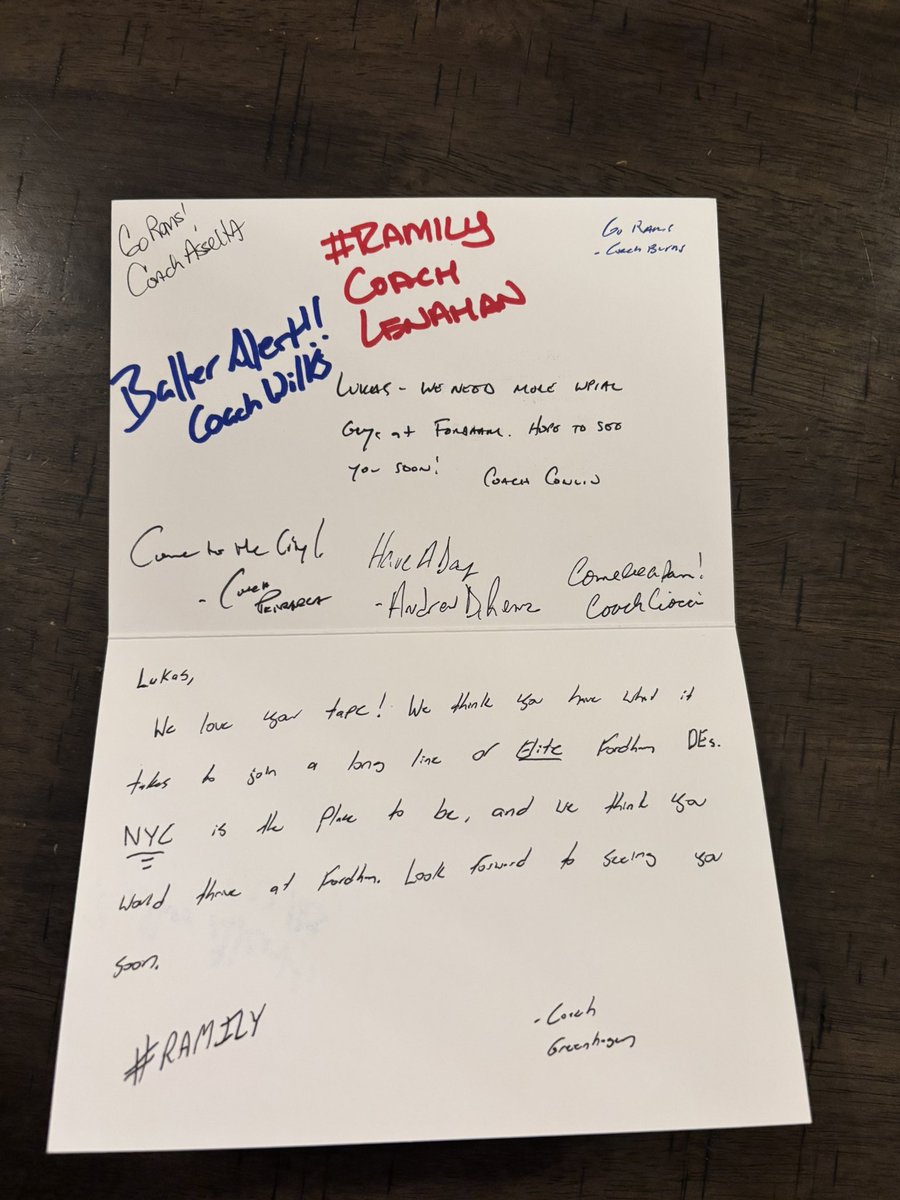 Go Rams!
Coach Asselta
#RAMILY
COACH
LENAHAN
Go Rams
- Coach Burns
Baller Alert!!
Coach Wilks
LUKAS - WE NEED MORE WPIAL
Guys at FORDHAM. HOPE TO SEE
YOU SOON!
COACH CONLIN
Come to the City!
- Coach
PETRARCA
Have A Day
- Andrew
Come be a Ram!
Coach Ciocci
Lukas,
We love your tape! We think you have what it
takes to join a long line of Elite Fordham DEs.
NYC is the place to be, and we think you
would thrive at Fordham. Look forward to seeing you
soon.
#RAMILY
- Coach
Greenhagen